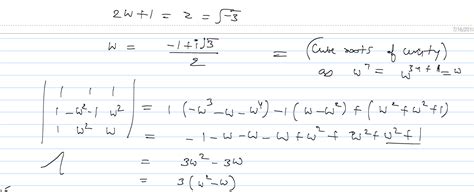 2W+1 = z = √-3
W = (-1+i√3)/2 = (Cube roots of unity)
as W⁷ = W = W
| 1 1 1 |
| 1 -W²-1 W² | = 1 (-W³-W-W⁴) -1 (W-W²) + (W²+W²+1)
| 1 W² W | = -1-W-W-W+W²+ W²+W²+1
= 3W²-3W
= 3 (W²-W)